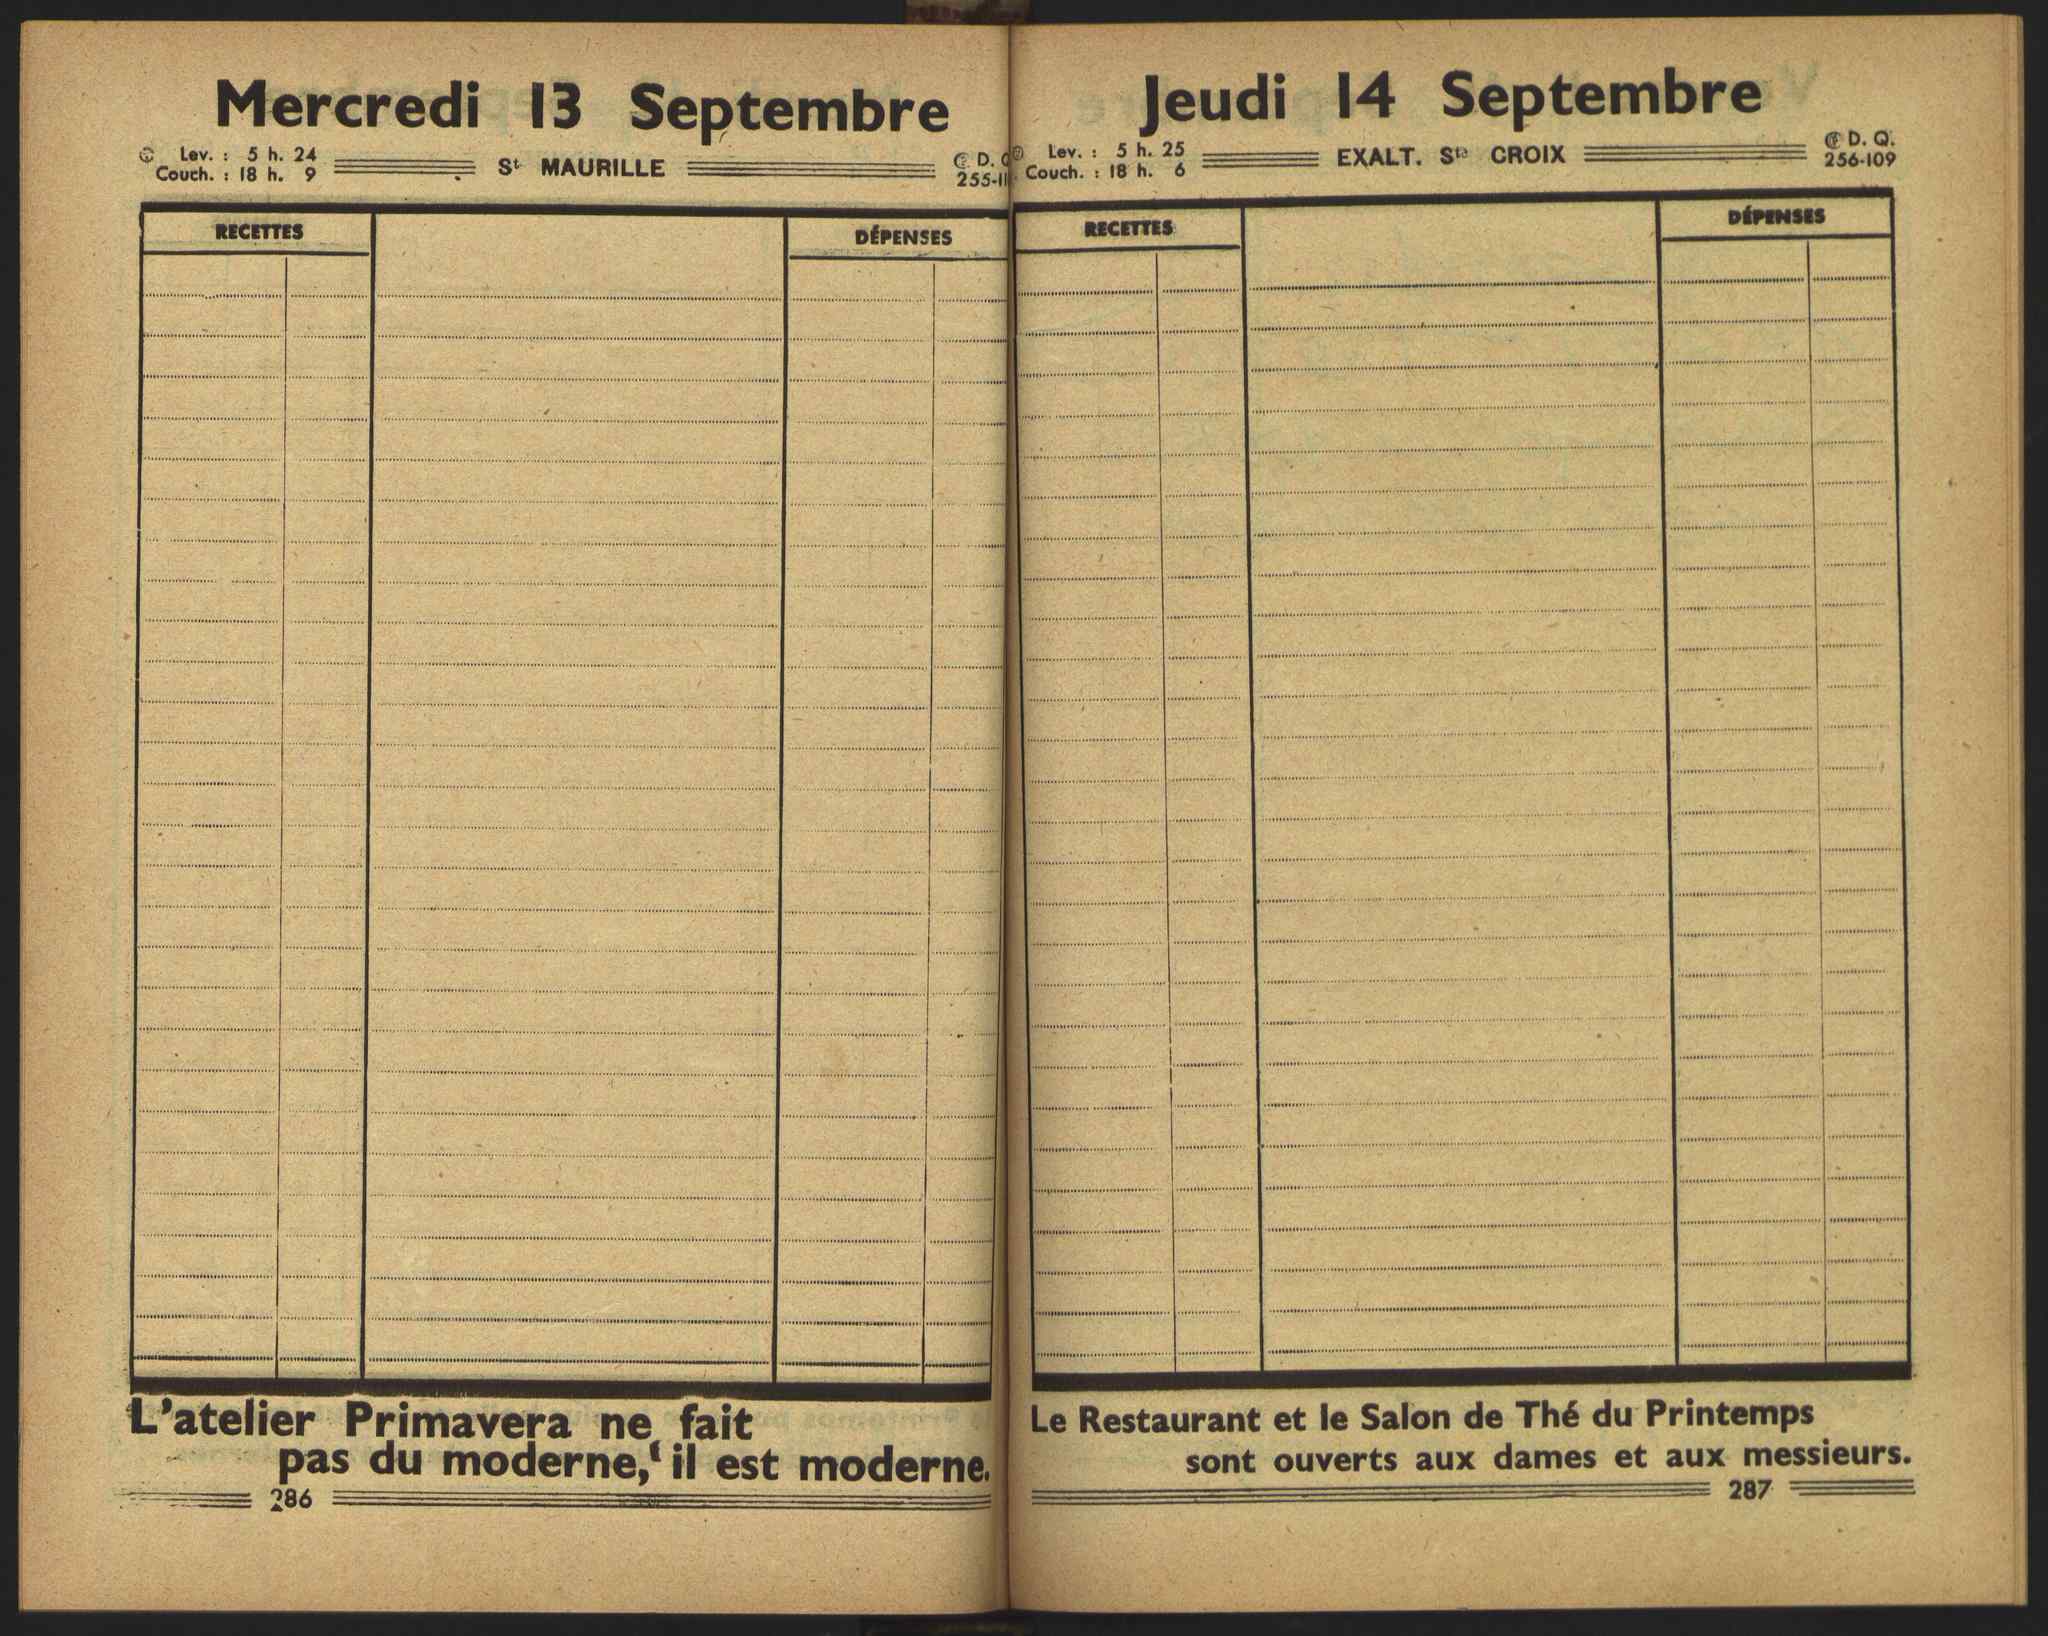 Mercredi 13 Septembre
Lev. : 5 h. 24
Couch. : 18 h. 9
St MAURILLE
D.
RECETTES
DÉPENSES
L'atelier Primavera ne fait
pas du moderne, il est moderne.
286
Jeudi 14 Septembre
Lev. : 5 h. 25
Couch. : 18 h. 6
EXALT. Ste CROIX
D. Q.
256-109
RECETTES
DÉPENSES
Le Restaurant et le Salon de Thé du Printemps
sont ouverts aux dames et aux messieurs.
287